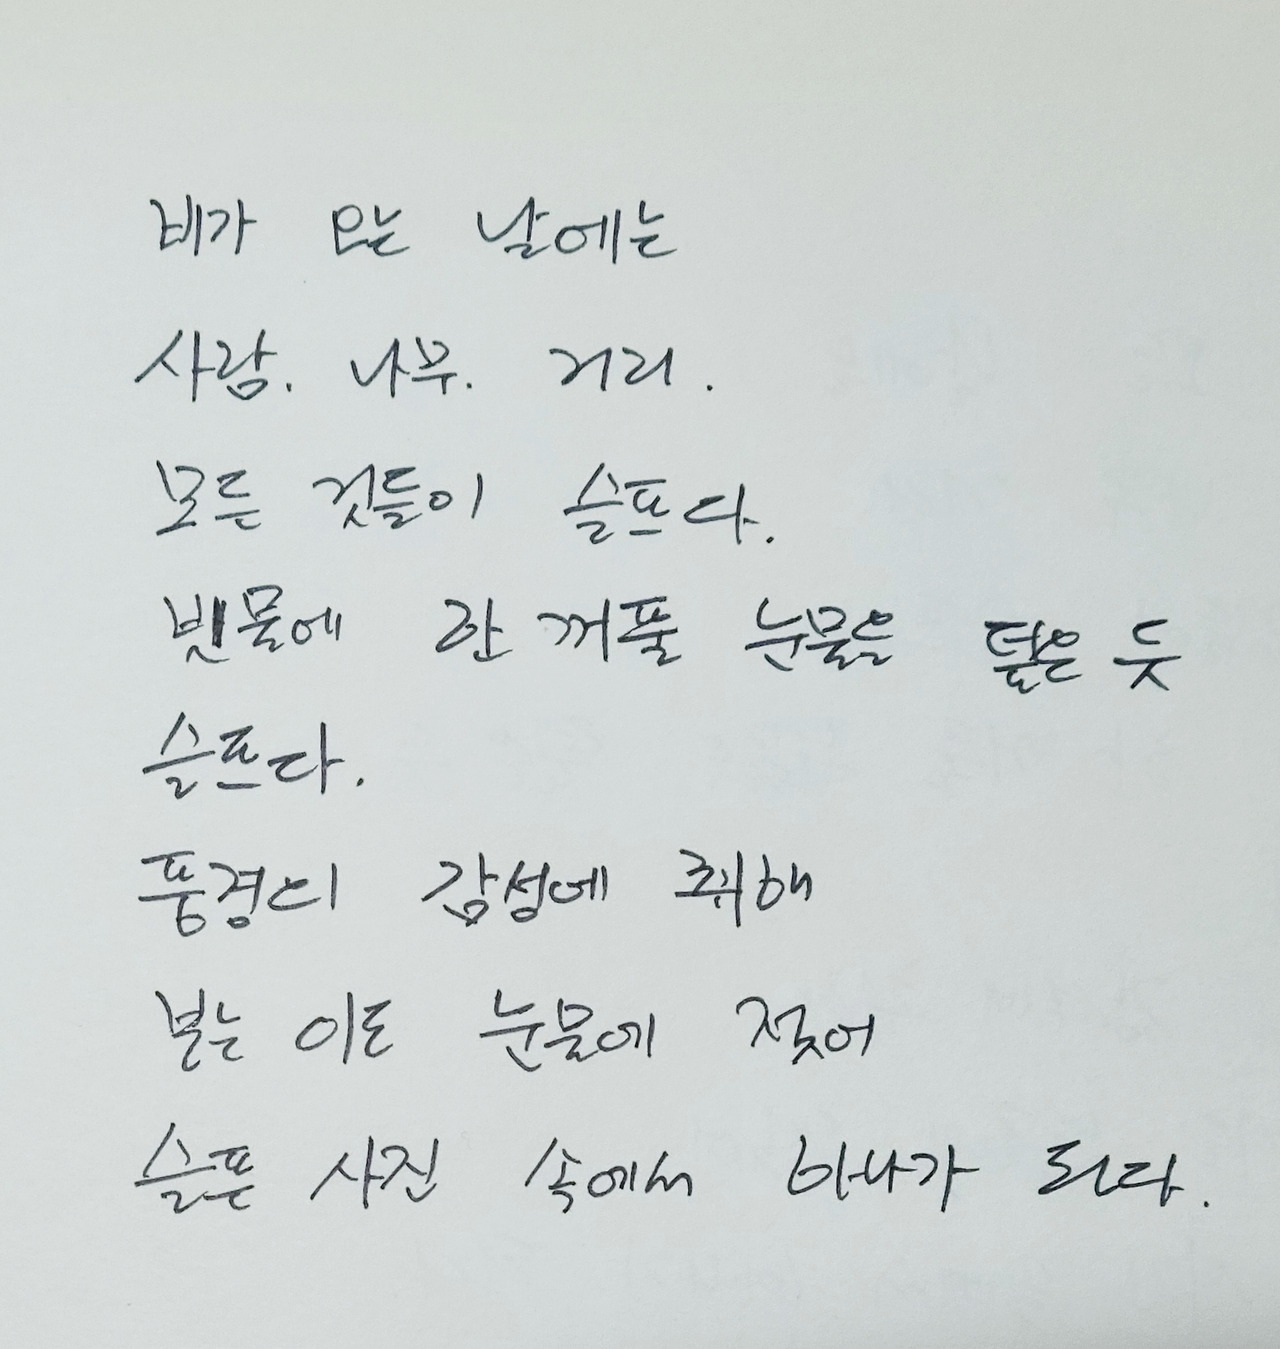 비가 오는 날에는
사람. 나무. 거리.
모든 것들이 슬프다.
빗물에 한 꺼풀 눈물을 덮은 듯
슬프다.
풍경의 감성에 취해
보는 이도 눈물에 젖어
슬픈 사진 속에서 하나가 된다.